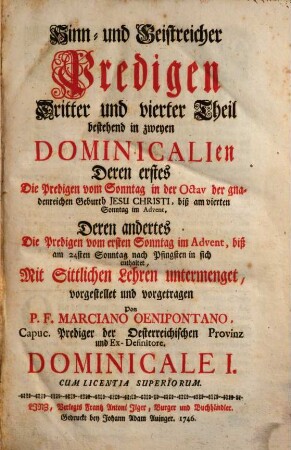 Sinn- und Geistreicher
Predigen
Dritter und vierter Theil
bestehend in zweyen
DOMINICALIen
Deren erstes
Die Predigen vom Sonntag in der Octav der gna-
denreichen Geburth JESU CHRISTI, biß am vierten
Sonntag im Advent,
Deren andertes
Die Predigen vom ersten Sonntag im Advent, biß
am 24sten Sonntag nach Pfingsten in sich
enthaltet,
Mit Sittlichen Lehren untermenget,
vorgestellet und vorgetragen
Von
P. F. MARCIANO OENIPONTANO,
Capuc. Prediger der Oesterreichischen Provinz
und Ex-Definitore.
DOMINICALE I.
CUM LICENTIA SUPERIORUM.
LINZ, Verlegts Frantz Antoni Ilger, Burger und Buchhändler.
Gedruckt bey Johann Adam Auinger. 1746.